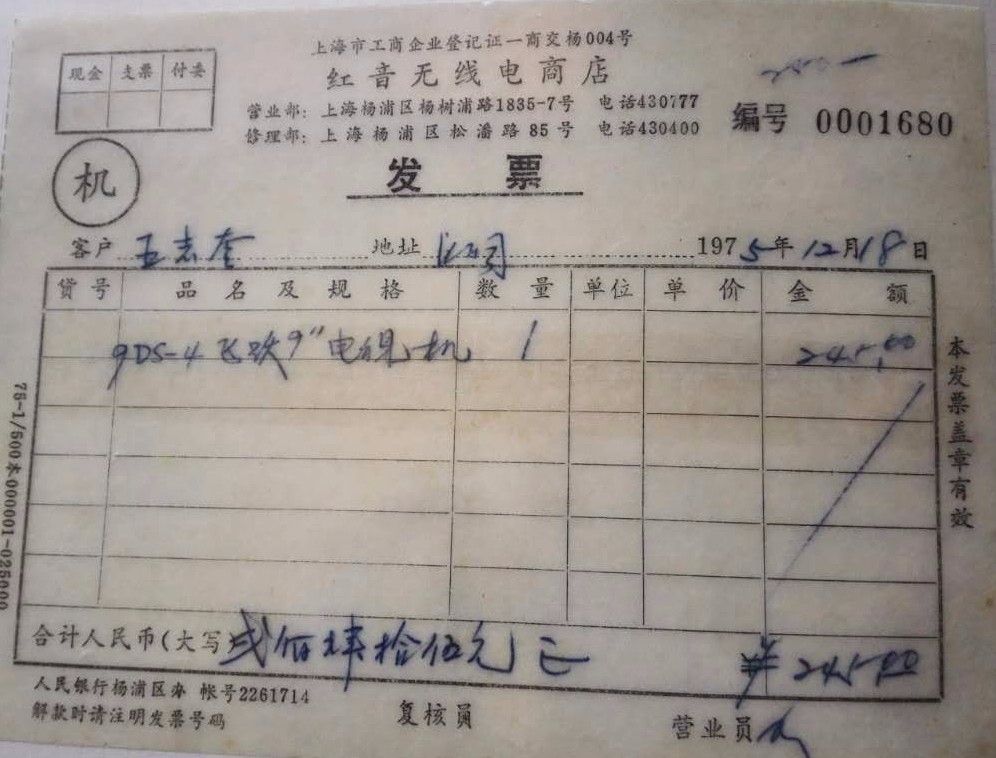 上海市工商企业登记证一商交杨004号
红音无线电商店
现金 支票 付委
营业部: 上海杨浦区杨树浦路1835-7号 电话430777
管理部: 上海杨浦区松潘路85号 电话430400
编号 0001680
机
发 票
客户 王志奎 地址 1975年12月18日
货号 品名及规格 数量 单位 单价 金额
9DS-4 飞跃9" 电视机 1 245.00
本发票盖章有效
75-1/500本000001-025000
合计人民币(大写) 贰佰肆拾伍元正 ¥ 245.00
人民银行杨浦区办 帐号2261714
解款时请注明发票号码 复核员 营业员